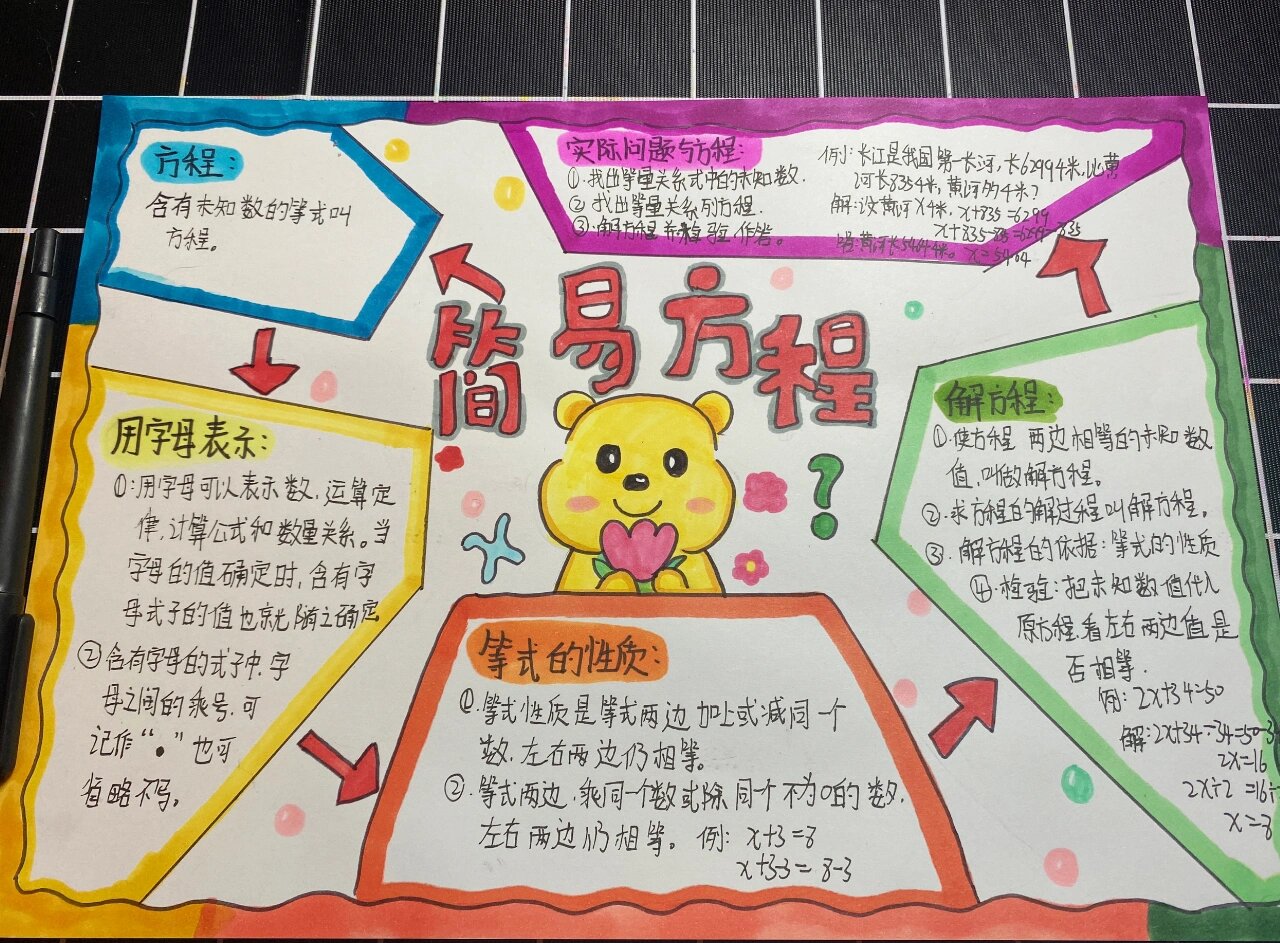 简易方程
方程:
含有未知数的等式叫
方程。
实际问题与方程:
①.找出等量关系式中的未知数.
② 找出等量关系列方程.
③.解方程并检验作答。
例:长江是我国第一长河,长6299千米,比黄
河长835千米,黄河多少千米?
解:设黄河x千米. x+835=6299
x+835-835=6299-835
答:黄河长5464千米。 x=5464
用字母表示:
①:用字母可以表示数.运算定
律,计算公式和数量关系。当
字母的值确定时,含有字
母式子的值也就随之确定
②含有字母的式子中.字
母之间的乘号.可
记作“•”也可
省略不写。
等式的性质:
①.等式性质是等式两边加上或减同一个
数.左右两边仍相等。
②.等式两边.乘同一个数或除同个不为0的数.
左右两边仍相等。例: x+3=8
x+3-3=8-3
解方程:
①.使方程 两边相等的未知数
值,叫做解方程。
②.求方程的解过程叫解方程。
③.解方程的依据:等式的性质
④.检验:把未知数值代入
原方程.看左右两边值是
否相等.
例: 2x+34=50
解:2x+34-34=50-34
2x=16
2x÷2=16÷
x=8
?